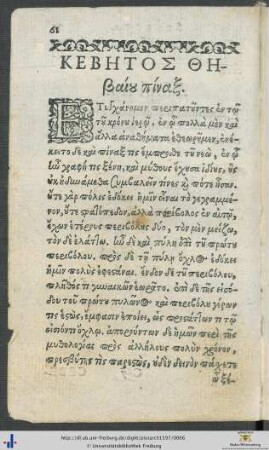 68
ΚΕΒΗΤΟΣ ΘΗ-
βαίου πίναξ.
ΕΤυγχάνομεν περιπατοῦντες ἐν τῷ
τοῦ κρόνου ἱερῷ, ἐν ᾧ πολλὰ μὲν καὶ
ἄλλα ἀναθήματα ἐθεωροῦμεν, ἀνέ-
κειτο δὲ καὶ πίναξ τις ἔμπροσθε τοῦ νεώ, ἐν ᾧ
ἦν γραφή τις ξένη, καὶ μύθους ἔχουσα ἰδίους, οὓς
οὐκ ἠδυνάμεθα συμβαλεῖν τίνες κỳ πότε ἦσαν.
οὔτε γὰρ πόλις ἐδόκει ἡμῖν εἶναι τὸ γεγραμμέ-
νον, οὔτε στρατόπεδον, ἀλλὰ περίβολος ἐν αὑτῷ
ἔχων ἑτέρους περιβόλους δύο, τὸν μὲν μείζω,
τὸν δὲ ἐλάττω. ἦν δὲ καὶ πύλη ἐπὶ τοῦ πρώτου
περιβόλου. πρὸς δὲ τῇ πύλῃ ὄχλος ἐδόκει
ἡμῖν πολὺς ἐφεστάναι. ἔνδον δὲ τοῦ περιβόλου,
πλῆθός τι γυναικῶν ἑωρᾶτο. ἐπὶ δὲ τῆς εἰσό-
δου τοῦ πρώτου πυλῶνος καὶ περιβόλου γέρων
τις ἑστὼς, ἔμφασιν ἐποίει, ὡς προστάττων τι τῷ
εἰσιόντι ὄχλῳ. ἀπορούντων δὲ ἡμῶν περὶ τῆς
μυθολογίας πρὸς ἀλλήλους πολὺν χρόνον,
πρεσβύτης τὶς παρεστὼς, οὐδὲν δεινὸν πάσχετε
ὦ ξέ-
http://dl.ub.uni-freiburg.de/diglit/pistarch1597/0066
© Universitätsbibliothek Freiburg
Baden-Württemberg